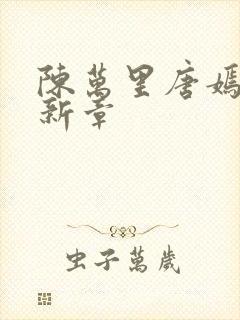 陳萬里唐嫣
新章
虫子萬歲